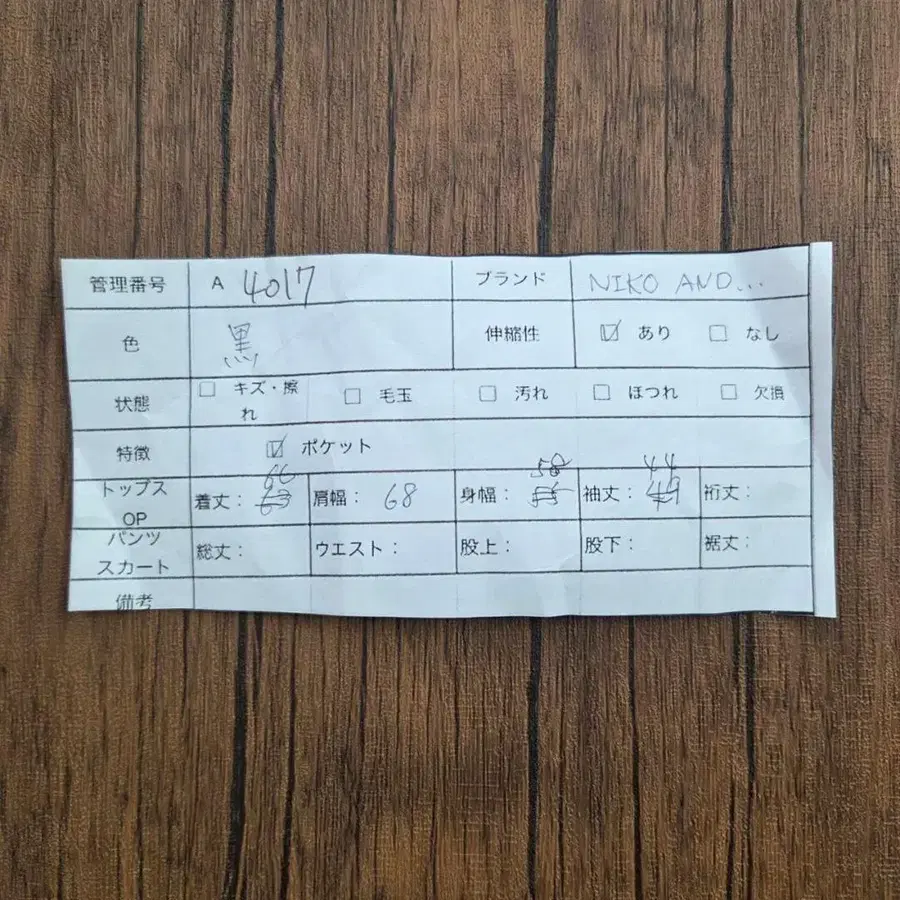 管理番号 A 4017 ブランド NIKO AND...
色 黒 伸縮性 ☑ あり ☐ なし
状態 ☐ キズ・擦れ ☐ 毛玉 ☐ 汚れ ☐ ほつれ ☐ 欠損
特徴 ☑ ポケット
トップス OP 着丈: 66 63 肩幅: 68 身幅: 58 袖丈: 44 49 裄丈:
パンツ スカート 総丈: ウエスト: 股上: 股下: 裾丈:
備考